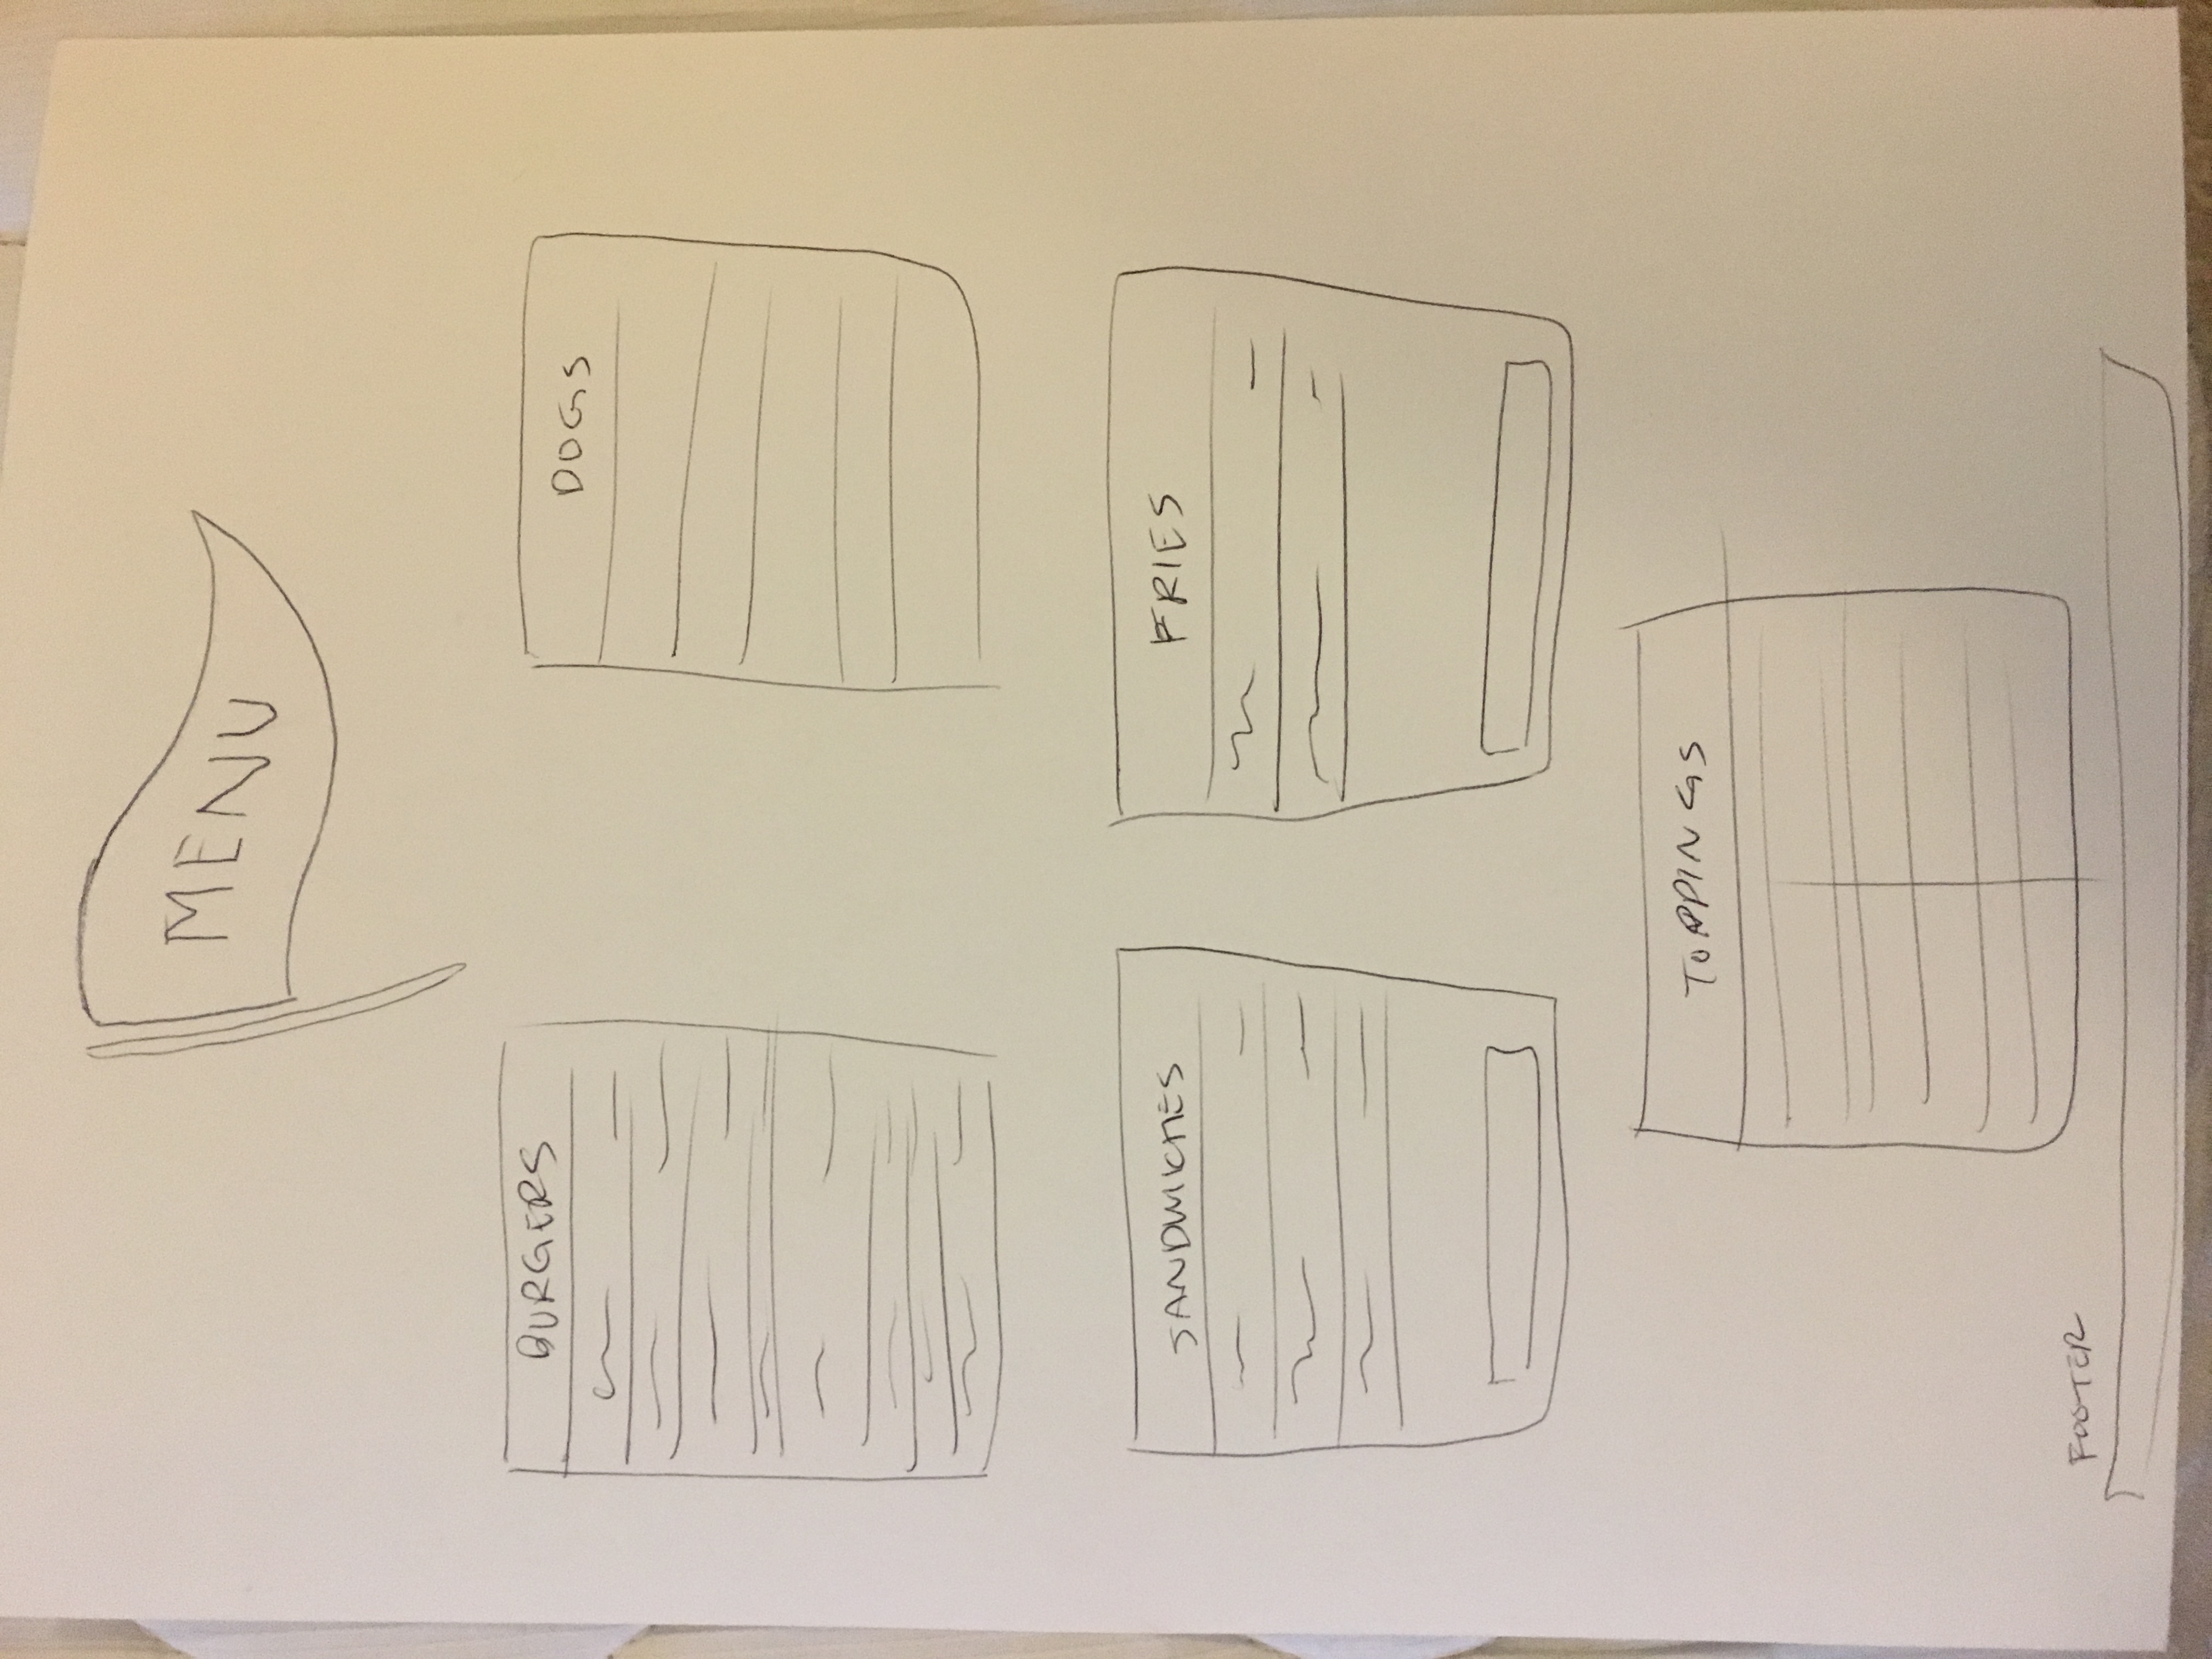 MENU
BURGERS
DOGS
SANDWICHES
FRIES
TOPPINGS
FOOTER